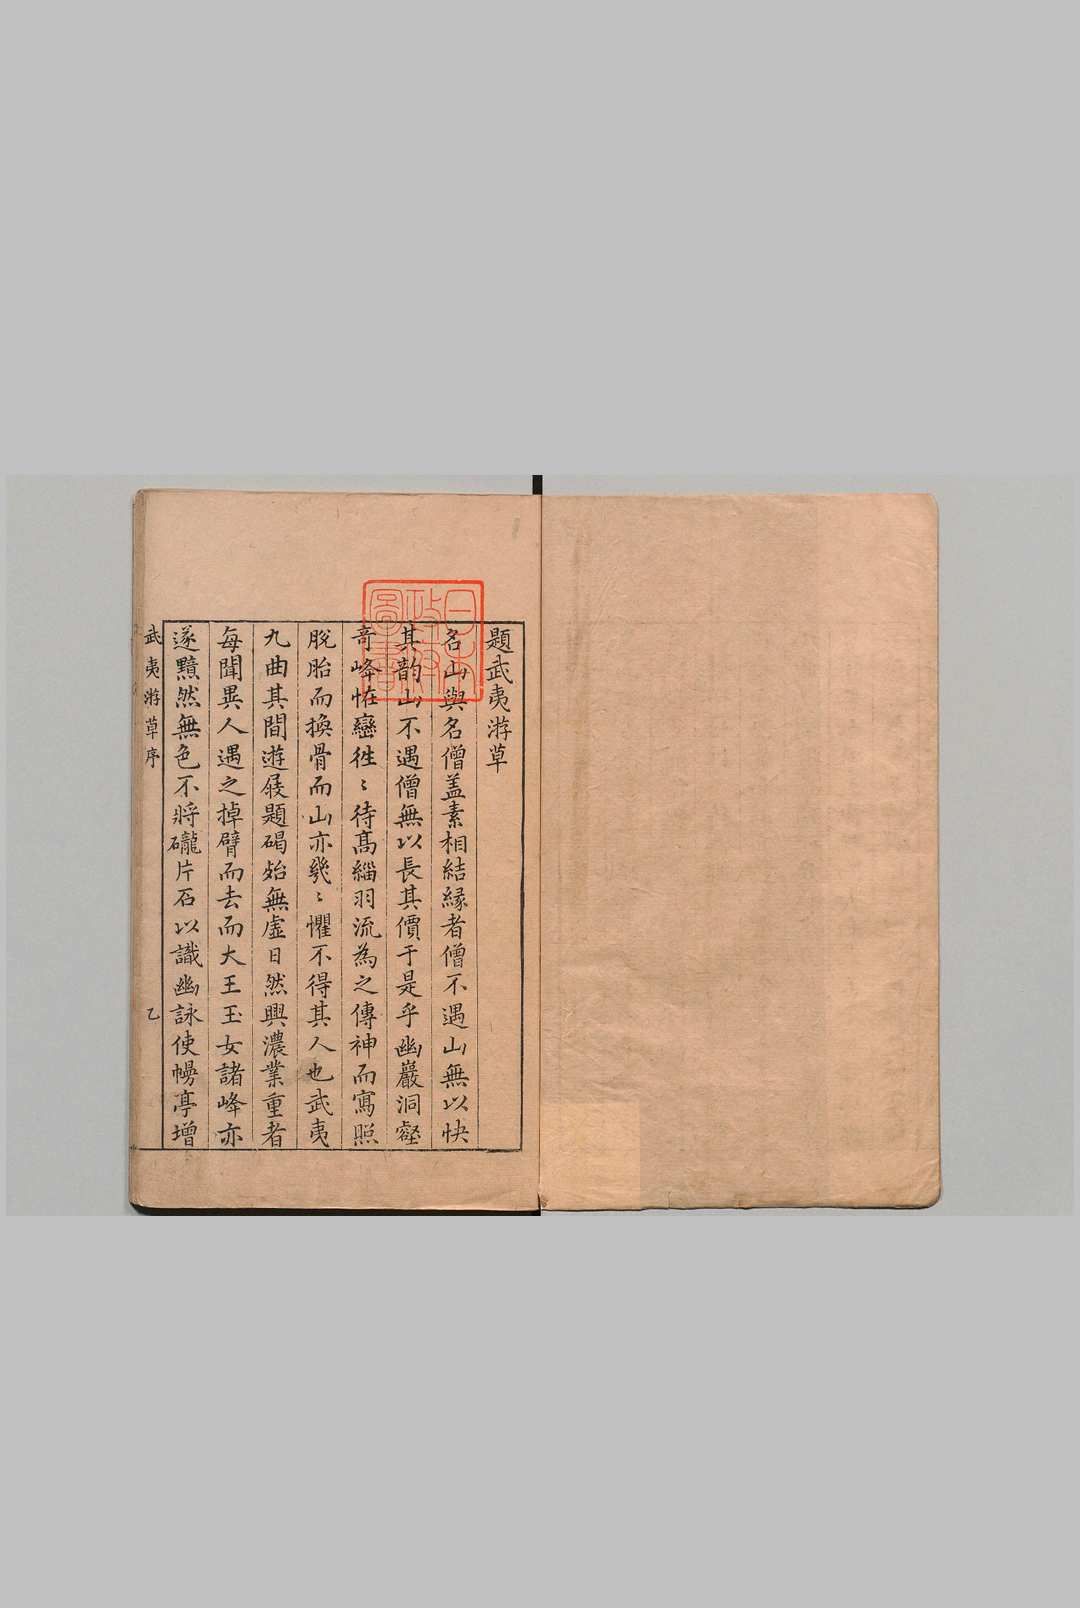 題武夷游草
名山與名僧盖素相結緣者僧不遇山無以快
其韵山不遇僧無以長其價于是乎幽巖洞壑
竒峰恠巒徃〻待髙緇羽流為之傳神而寫照
脱胎而換骨而山亦㡬〻懼不得其人也武夷
九曲其間遊屐題碣殆無虛日然興濃業重者
每聞異人遇之掉臂而去而大王玉女諸峰亦
遂黯然無色不將礲片石以識幽詠使幔亭增
武夷游草序
乙
日本
政府
圖書